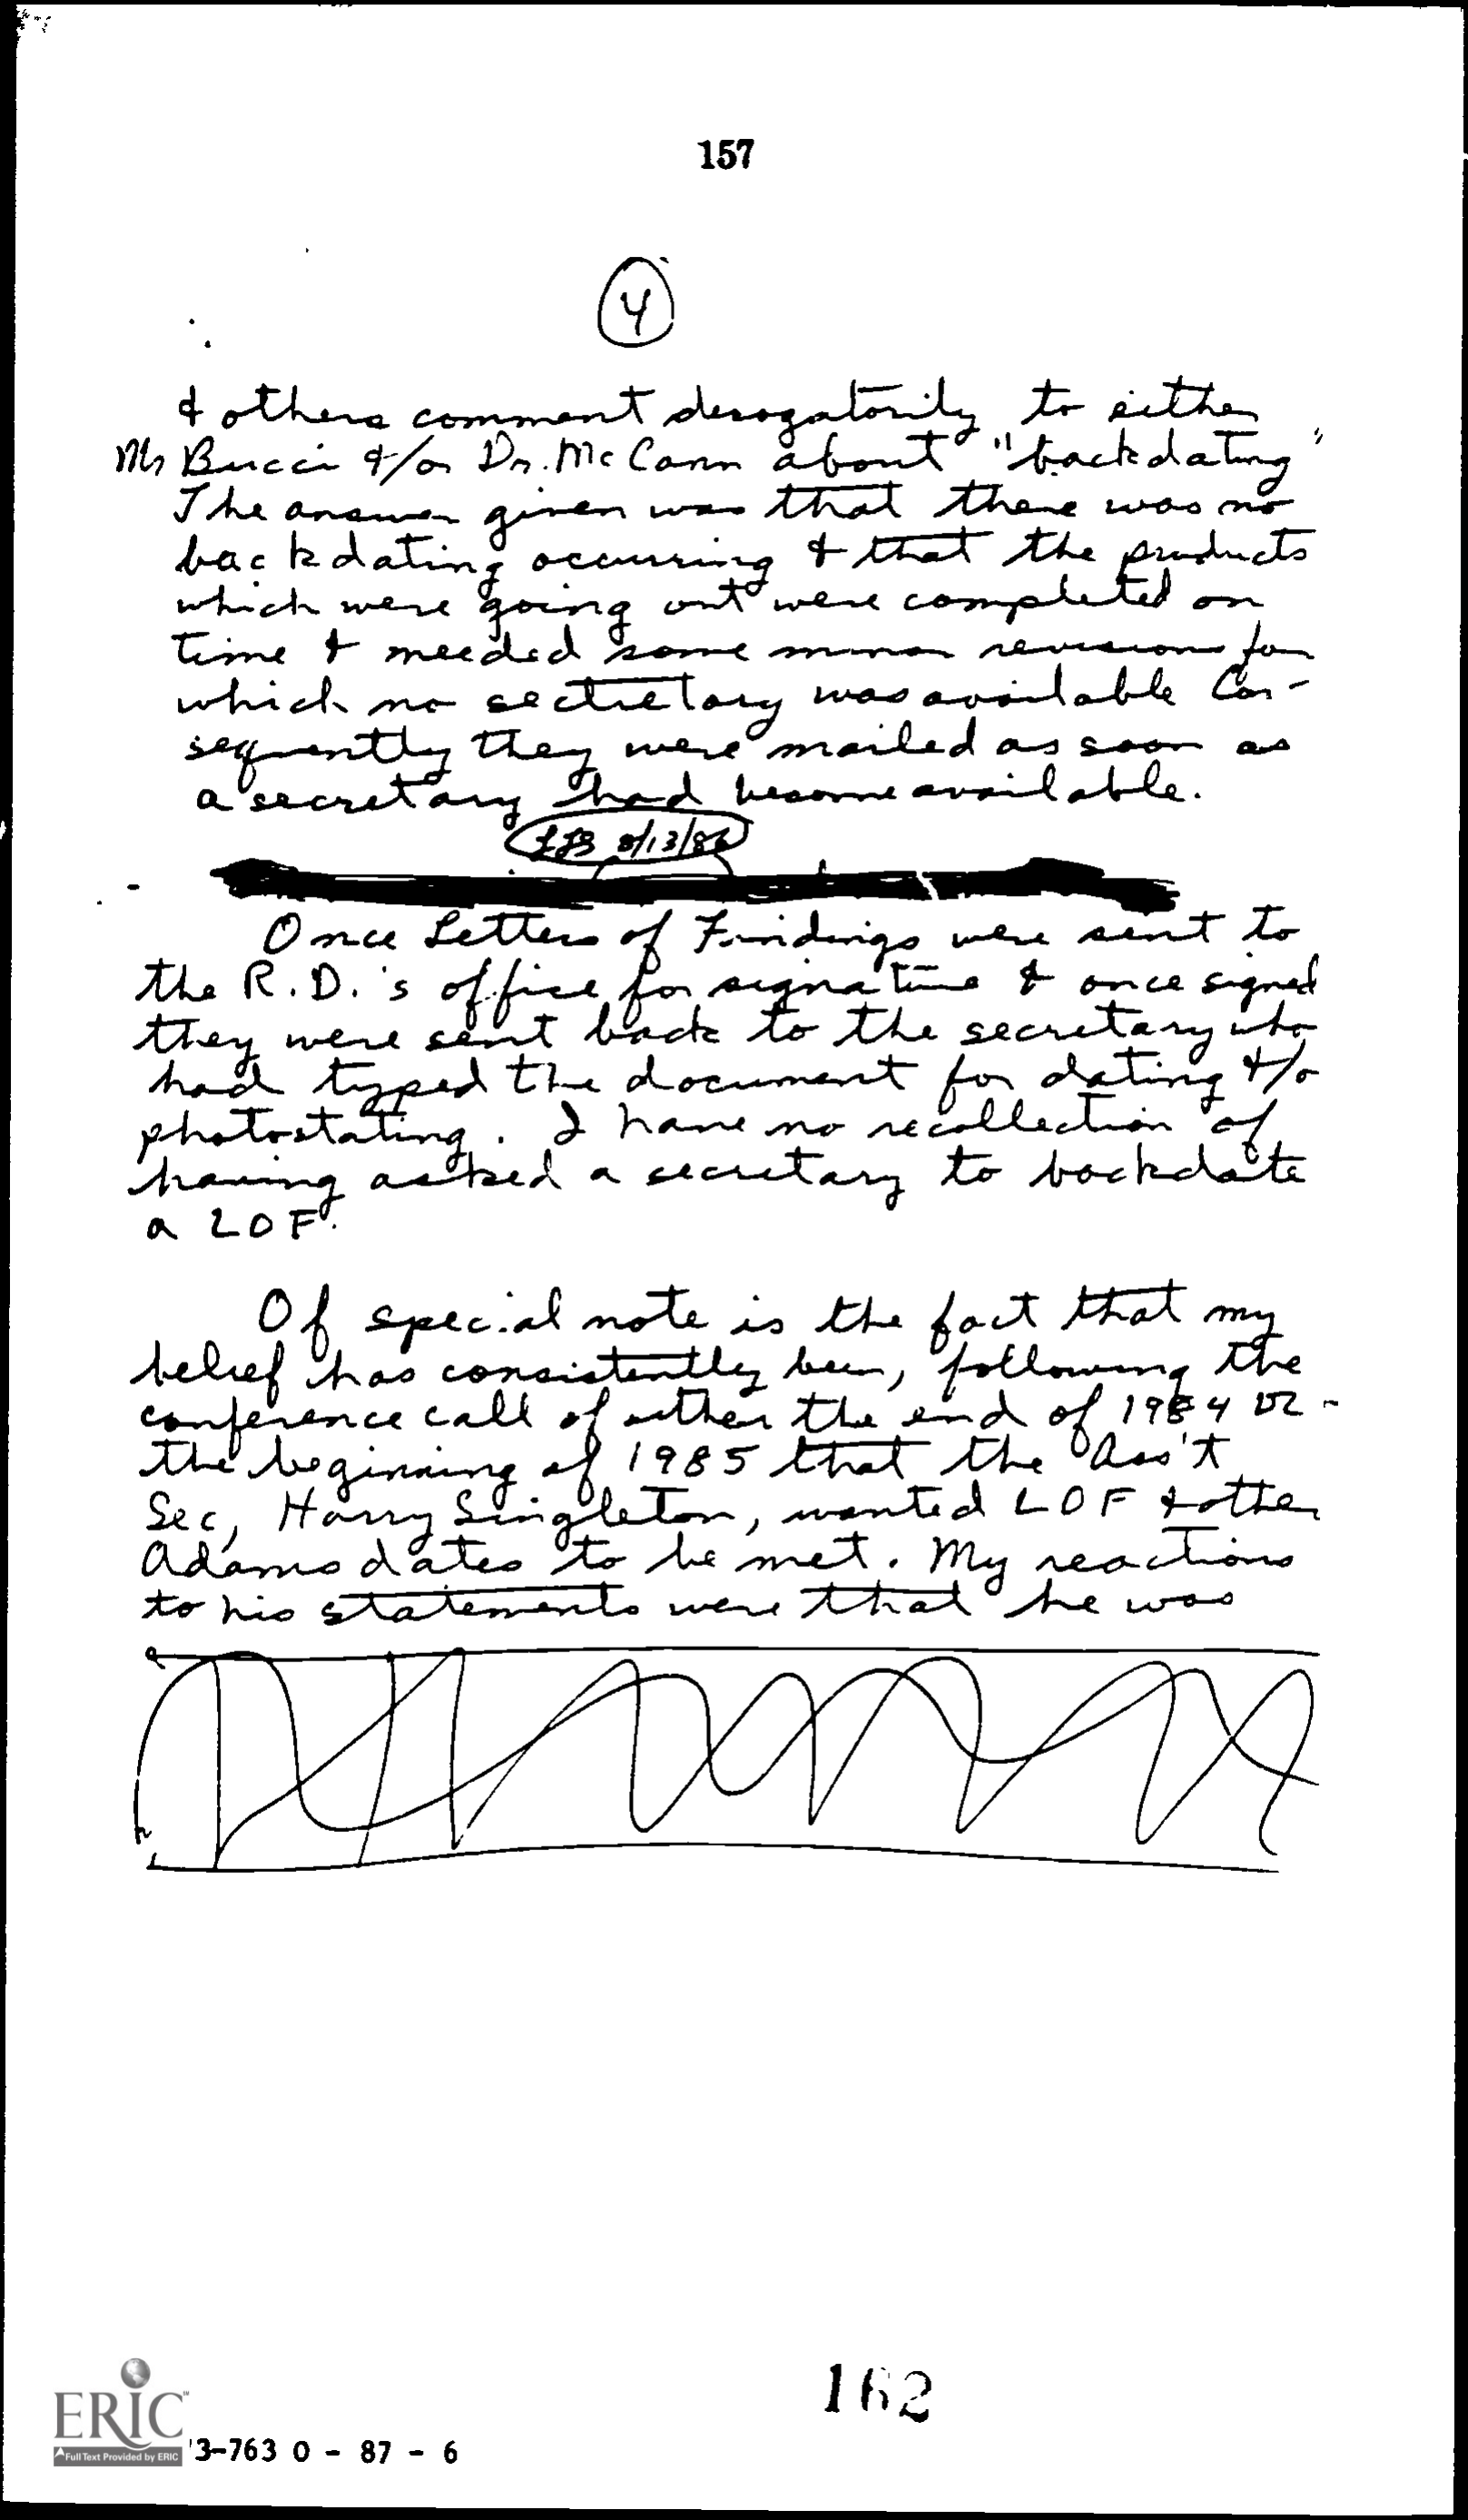 157
4
& others comment derogatorily to either
Mr Bucci &/or Dr. McCann about "backdating"
The answer given was that there was no
backdating occurring & that the products
which were going out were completed on
time & needed some minor revisions for
which no sectretary was available Con-
sequently they were mailed as soon as
a secretary had become available.
8/13/86
Once Letters of Findings were sent to
the R.D.'s office for signature & once signed
they were sent back to the secretary who
had typed the document for dating &/o
photostating. I have no recollection of
having asked a secretary to backdate
a LOF.
Of special note is the fact that my
belief has consistently been, following the
conference call of either the end of 1984 or
the beginning of 1985 that the Ass't
Sec, Harry Singleton, wanted LOF & other
Adams dates to be met. My reactions
to his statements were that he was
162
ERIC
Full Text Provided by ERIC
3-763 O - 87 - 6